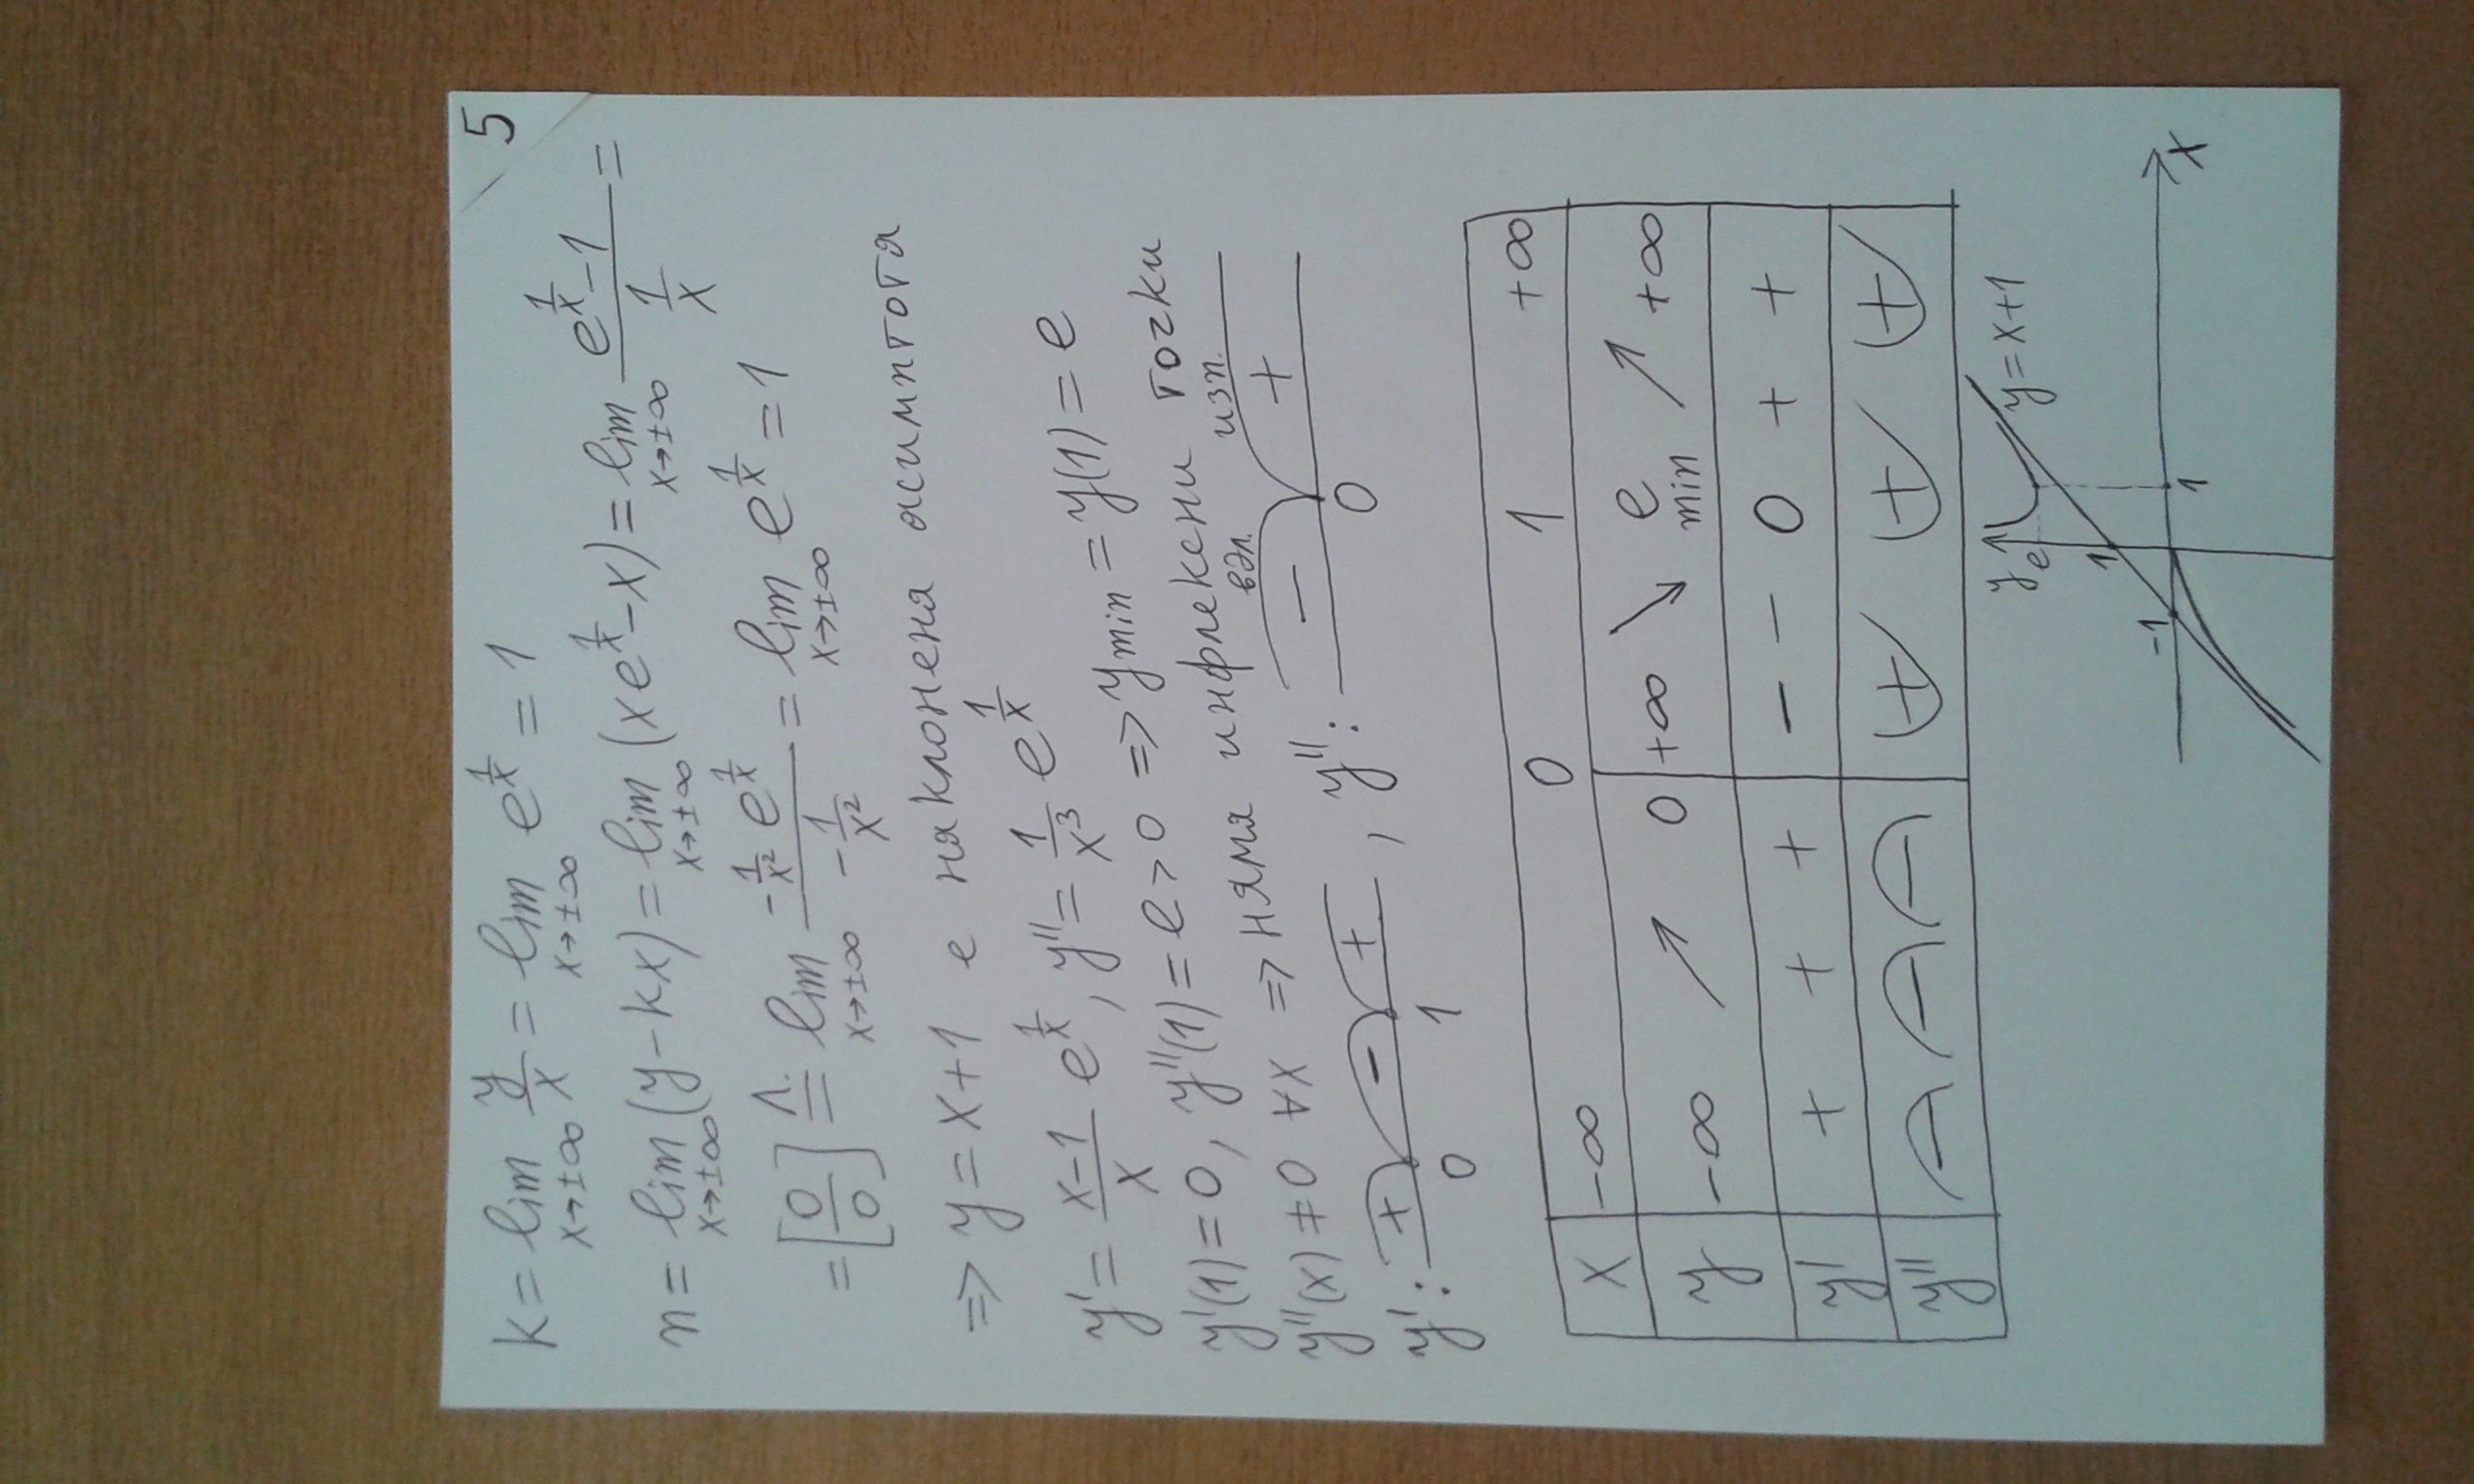 5
k = lim_{x→±∞} y/x = lim_{x→±∞} e^{1/x} = 1
n = lim_{x→±∞} (y-kx) = lim_{x→±∞} (xe^{1/x}-x) = lim_{x→±∞} (e^{1/x}-1)/(1/x) =
= [0/0] Λ.= lim_{x→±∞} (-1/x² e^{1/x})/(-1/x²) = lim_{x→±∞} e^{1/x} = 1
=> y = x+1 е наклонена асимптота
y' = (x-1)/x e^{1/x}, y'' = 1/x³ e^{1/x}
y'(1) = 0, y''(1) = e > 0 => ymin = y(1) = e
y''(x) ≠ 0 ∀x => няма инфлексни точки
y': + 0 - 1 +, y'': вдл. - 0 изп. +
x -∞ 0 1 +∞
y -∞ ↗ 0 +∞ ↘ e min ↗ +∞
y' + + + - - 0 + +
y'' - - - + + +
y e y = x+1
1
-1 1 x